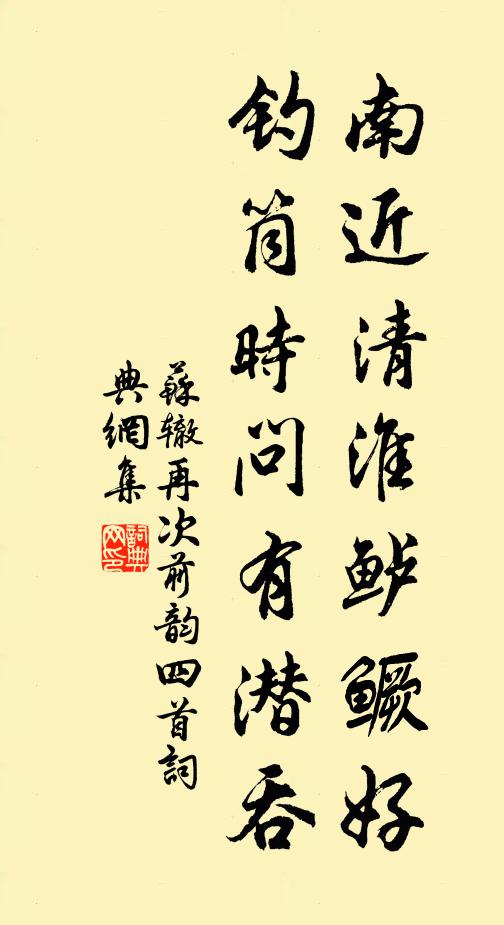 南近清淮鲈鳜好
钓筒時問有潜吞
蘇辙再次前韵四首詞
典網集
詞典网印